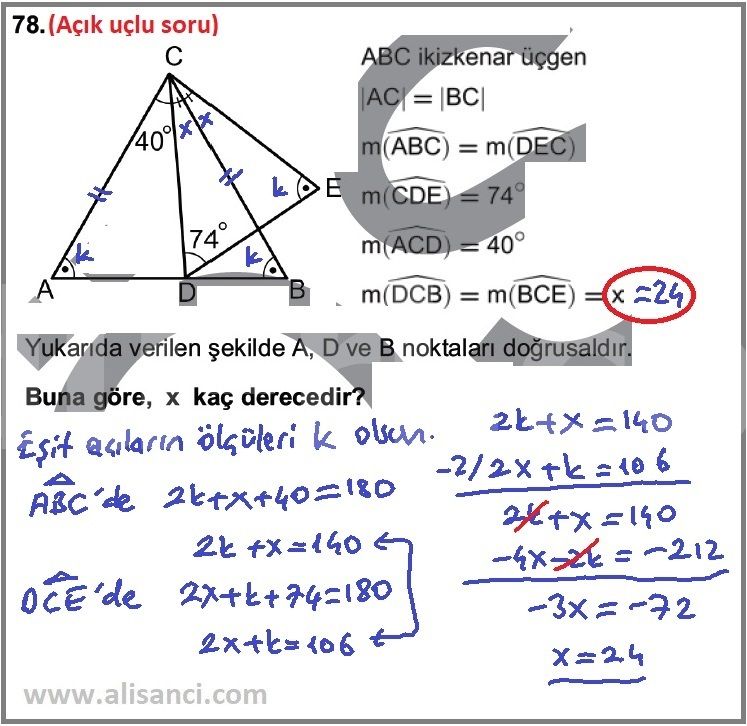 78.(Açık uçlu soru)
C
40°
x x
k
E
74°
k
k
A
D
B
ABC ikizkenar üçgen
|AC| = |BC|
m(ABC) = m(DEC)
m(CDE) = 74°
m(ACD) = 40°
m(DCB) = m(BCE) = x =24
Yukarıda verilen şekilde A, D ve B noktaları doğrusaldır.
Buna göre, x kaç derecedir?
Eşit açıların ölçüleri k olsun.
ABC'de 2k+x+40=180
2k+x=140
DCE'de 2x+k+74=180
2x+k=106
2k+x=140
-2/ 2x+k=106
2k+x=140
-4x-2k=-212
-3x=-72
x=24
www.alisanci.com